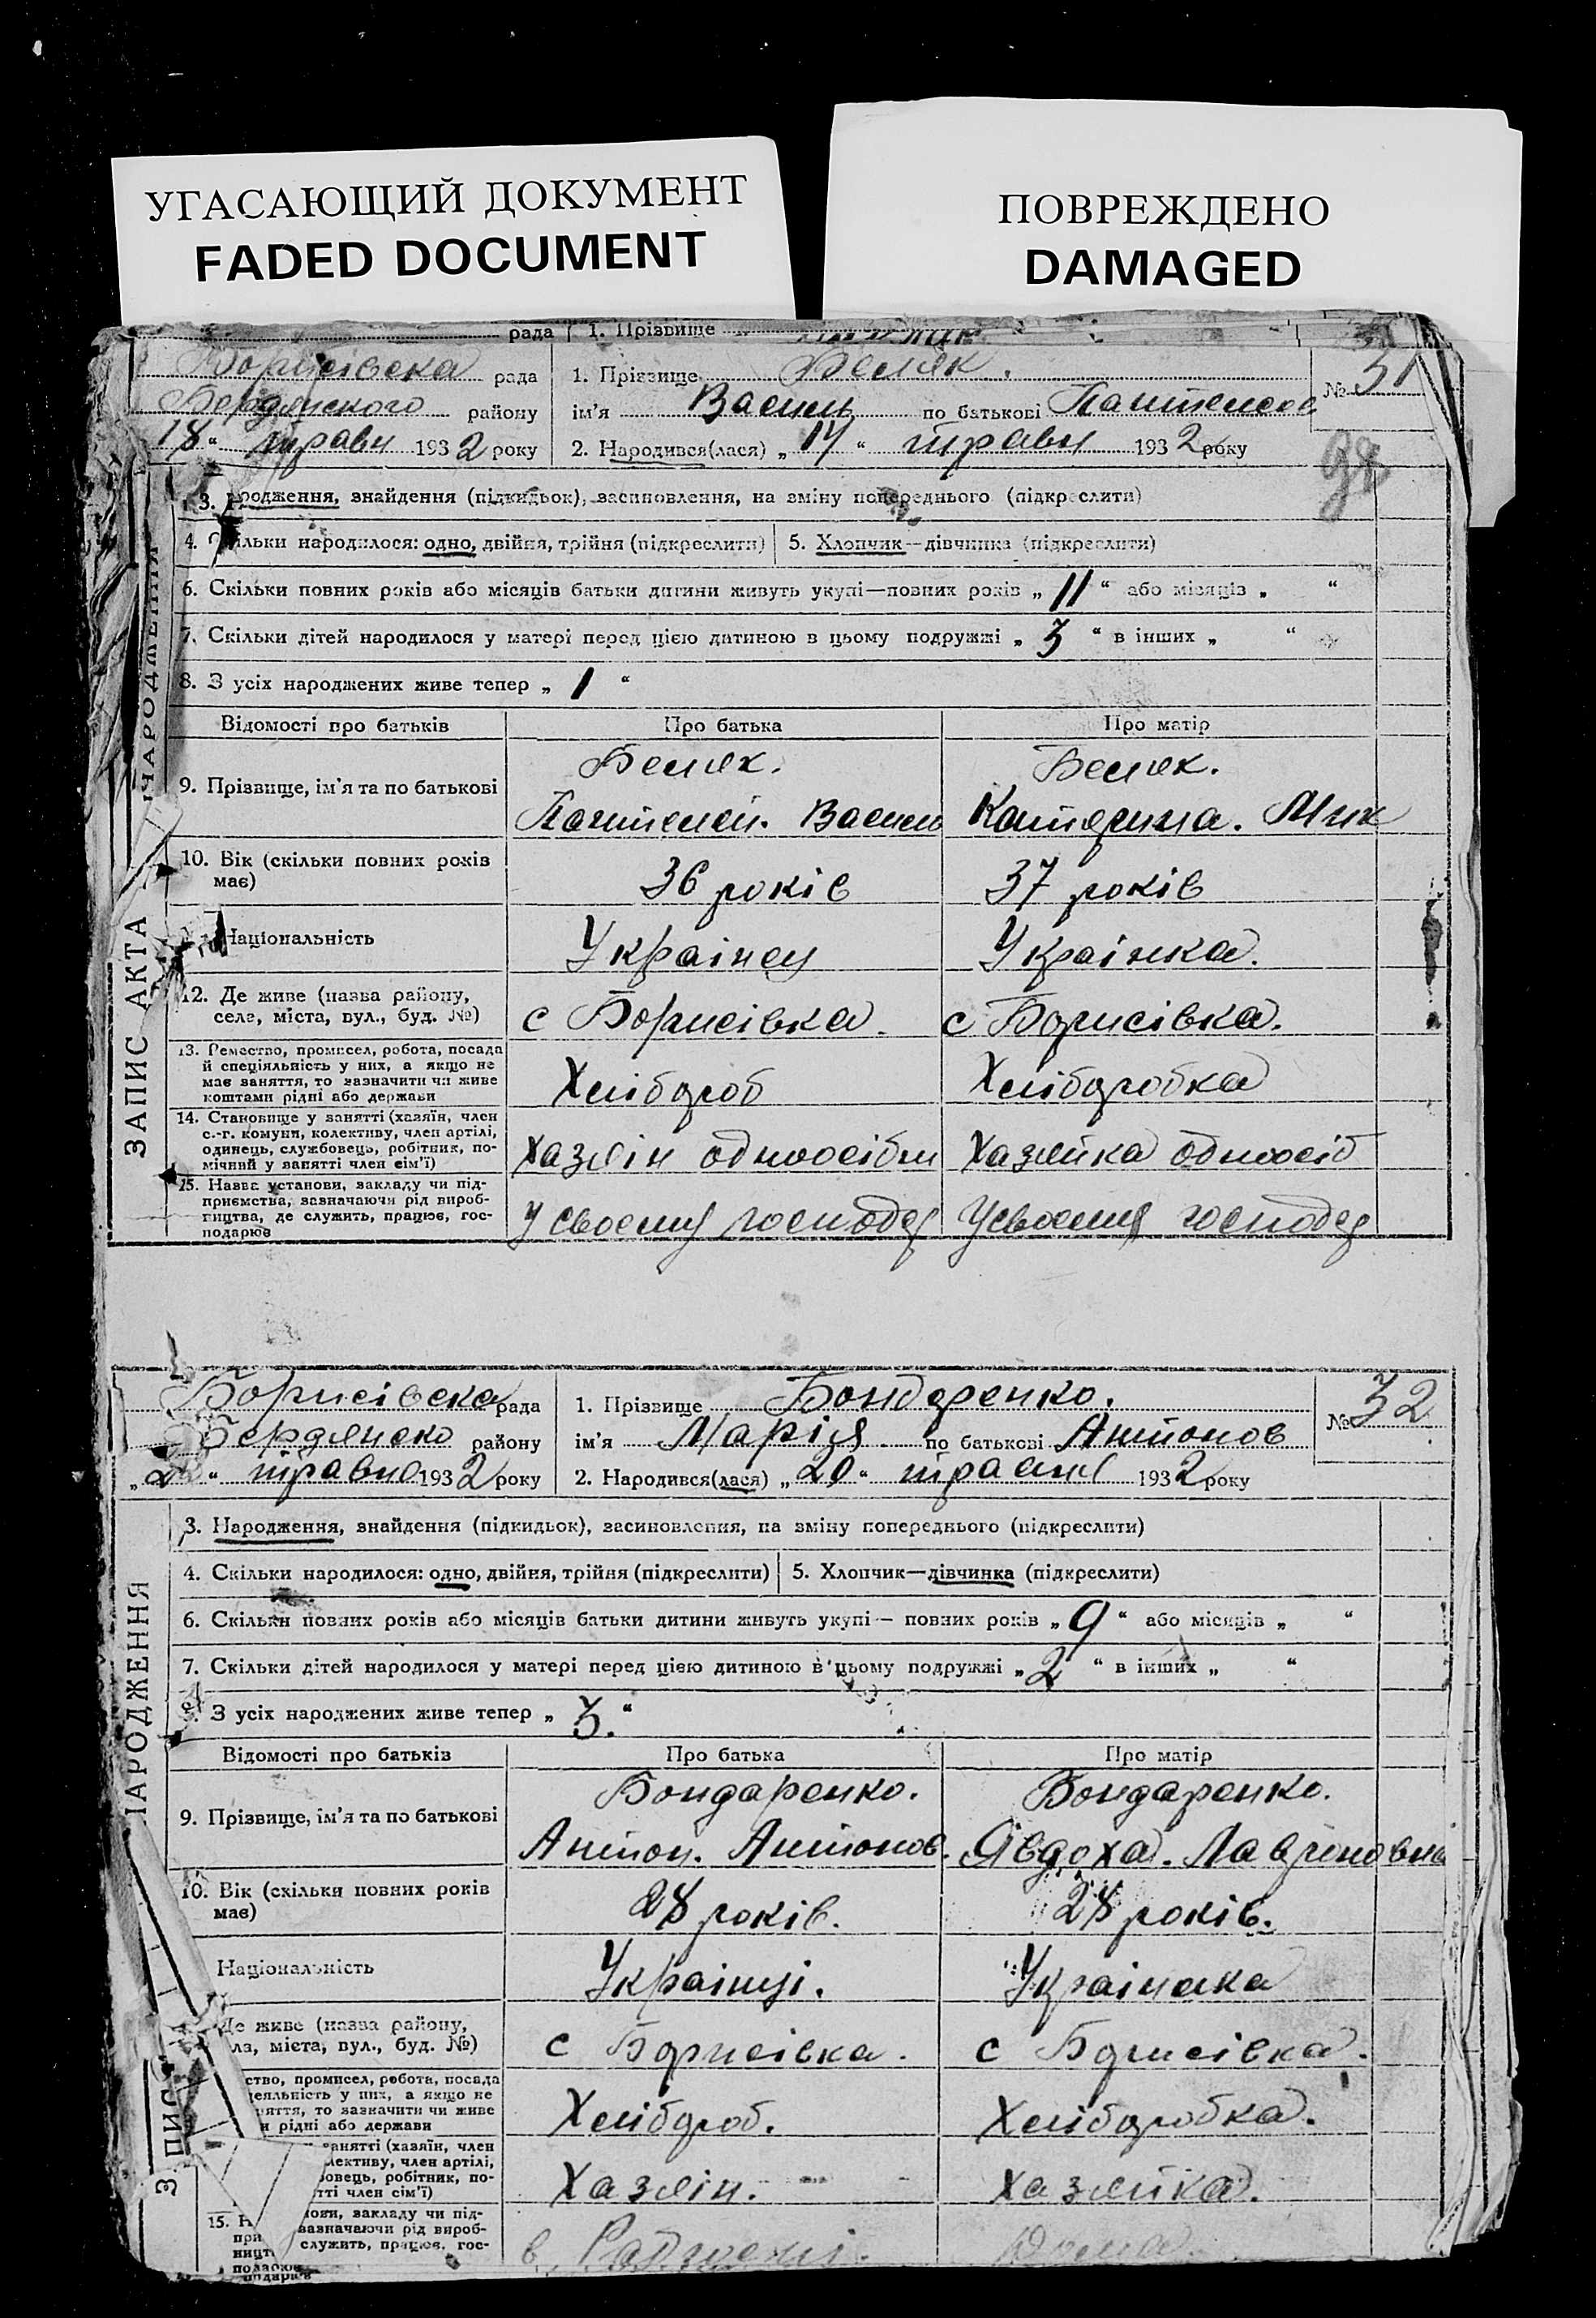 УГАСАЮЩИЙ ДОКУМЕНТ
FADED DOCUMENT
ПОВРЕЖДЕНО
DAMAGED
рада 1. Прізвище
Борисівська рада 1. Прізвище Беляк. № 31
Бердянського району ім'я Василь по батькові Пантелеєв
18 “ травн 1932 року 2. Народився(лася) „ 14 “ травн 1932 року
3. родження, знайдення (підкидьок), засиновлення, на зміну попереднього (підкреслити)
4. Скільки народилося: одно, двійня, трійня (підкреслити) 5. Хлопчик—дівчинка (підкреслити)
6. Скільки повних років або місяців батьки дитини живуть укупі—повних років „ 11 “ або місяців „ “
7. Скільки дітей народилося у матері перед цією дитиною в цьому подружжі „ 3 “ в інших „ “
8. З усіх народжених живе тепер „ 1 “
Відомості про батьків Про батька Про матір
9. Прізвище, ім'я та по батькові
Беляк. Беляк.
Пантелей. Васил Катерина. Мик
10. Вік (скільки повних років має) 36 років 37 років
Національність Українец Українка.
12. Де живе (назва району, села, міста, вул., буд. №) с Борисівка. с Борисівка.
13. Ремество, промисел, робота, посада
й спеціяльність у них, а якщо не
має заняття, то зазначити чи живе
коштами рідні або держави
Хлібороб Хліборобка
14. Становище у занятті (хазяїн, член
с.-г. комуни, колективу, член артілі,
одинець, службовець, робітник, по-
мічний у занятті член сім'ї)
Хазяін одноосібн Хазяйка одноосіб
15. Назва установи, закладу чи під-
приємства, зазначаючи рід вироб-
ництва, де служить, працює, гос-
подарює
У своему господар У своему господар
ЗАПИС АКТА НАРОДЖЕННЯ
Борисівска рада 1. Прізвище Бондаренко. № 32
Бердянско району ім'я Марія по батькові Антонов
„ 22 “ травня 1932 року 2. Народився(лася) „ 20 “ травня 1932 року
3. Народження, знайдення (підкидьок), засиновлення, на зміну попереднього (підкреслити)
4. Скільки народилося: одно, двійня, трійня (підкреслити) 5. Хлопчик—дівчинка (підкреслити)
6. Скільки повних років або місяців батьки дитини живуть укупі — повних років „ 9 “ або місяців „ “
7. Скільки дітей народилося у матері перед цією дитиною в цьому подружжі „ 2 “ в інших „ “
8. З усіх народжених живе тепер „ 3. “
Відомості про батьків Про батька Про матір
9. Прізвище, ім'я та по батькові
Бондаренко. Бондаренко.
Антон. Антонов. Явдоха. Лавреновна
10. Вік (скільки повних років має) 28 років. 28 років.
Національність Українці. Українка
Де живе (назва району,
ла, міста, вул., буд. №)
с Борисівка. с Борисівка.
ство, промисел, робота, посада
еяльність у них, а якщо не
няття, то зазначити чи живе
и рідні або держави
Хлібороб. Хліборобка.
занятті (хазяїн, член
лективу, член артілі,
овець, робітник, по-
тті член сім'ї)
Хазяін. Хазяйка.
15. Н ови, закладу чи під-
при зазначаючи рід вироб-
ницт служить, працює, гос-
подарює
в
подарює
З ПИС НАРОДЖЕННЯ